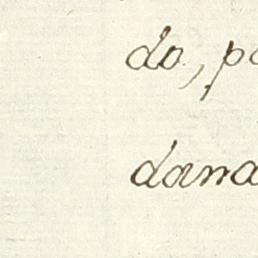 do, po
dana